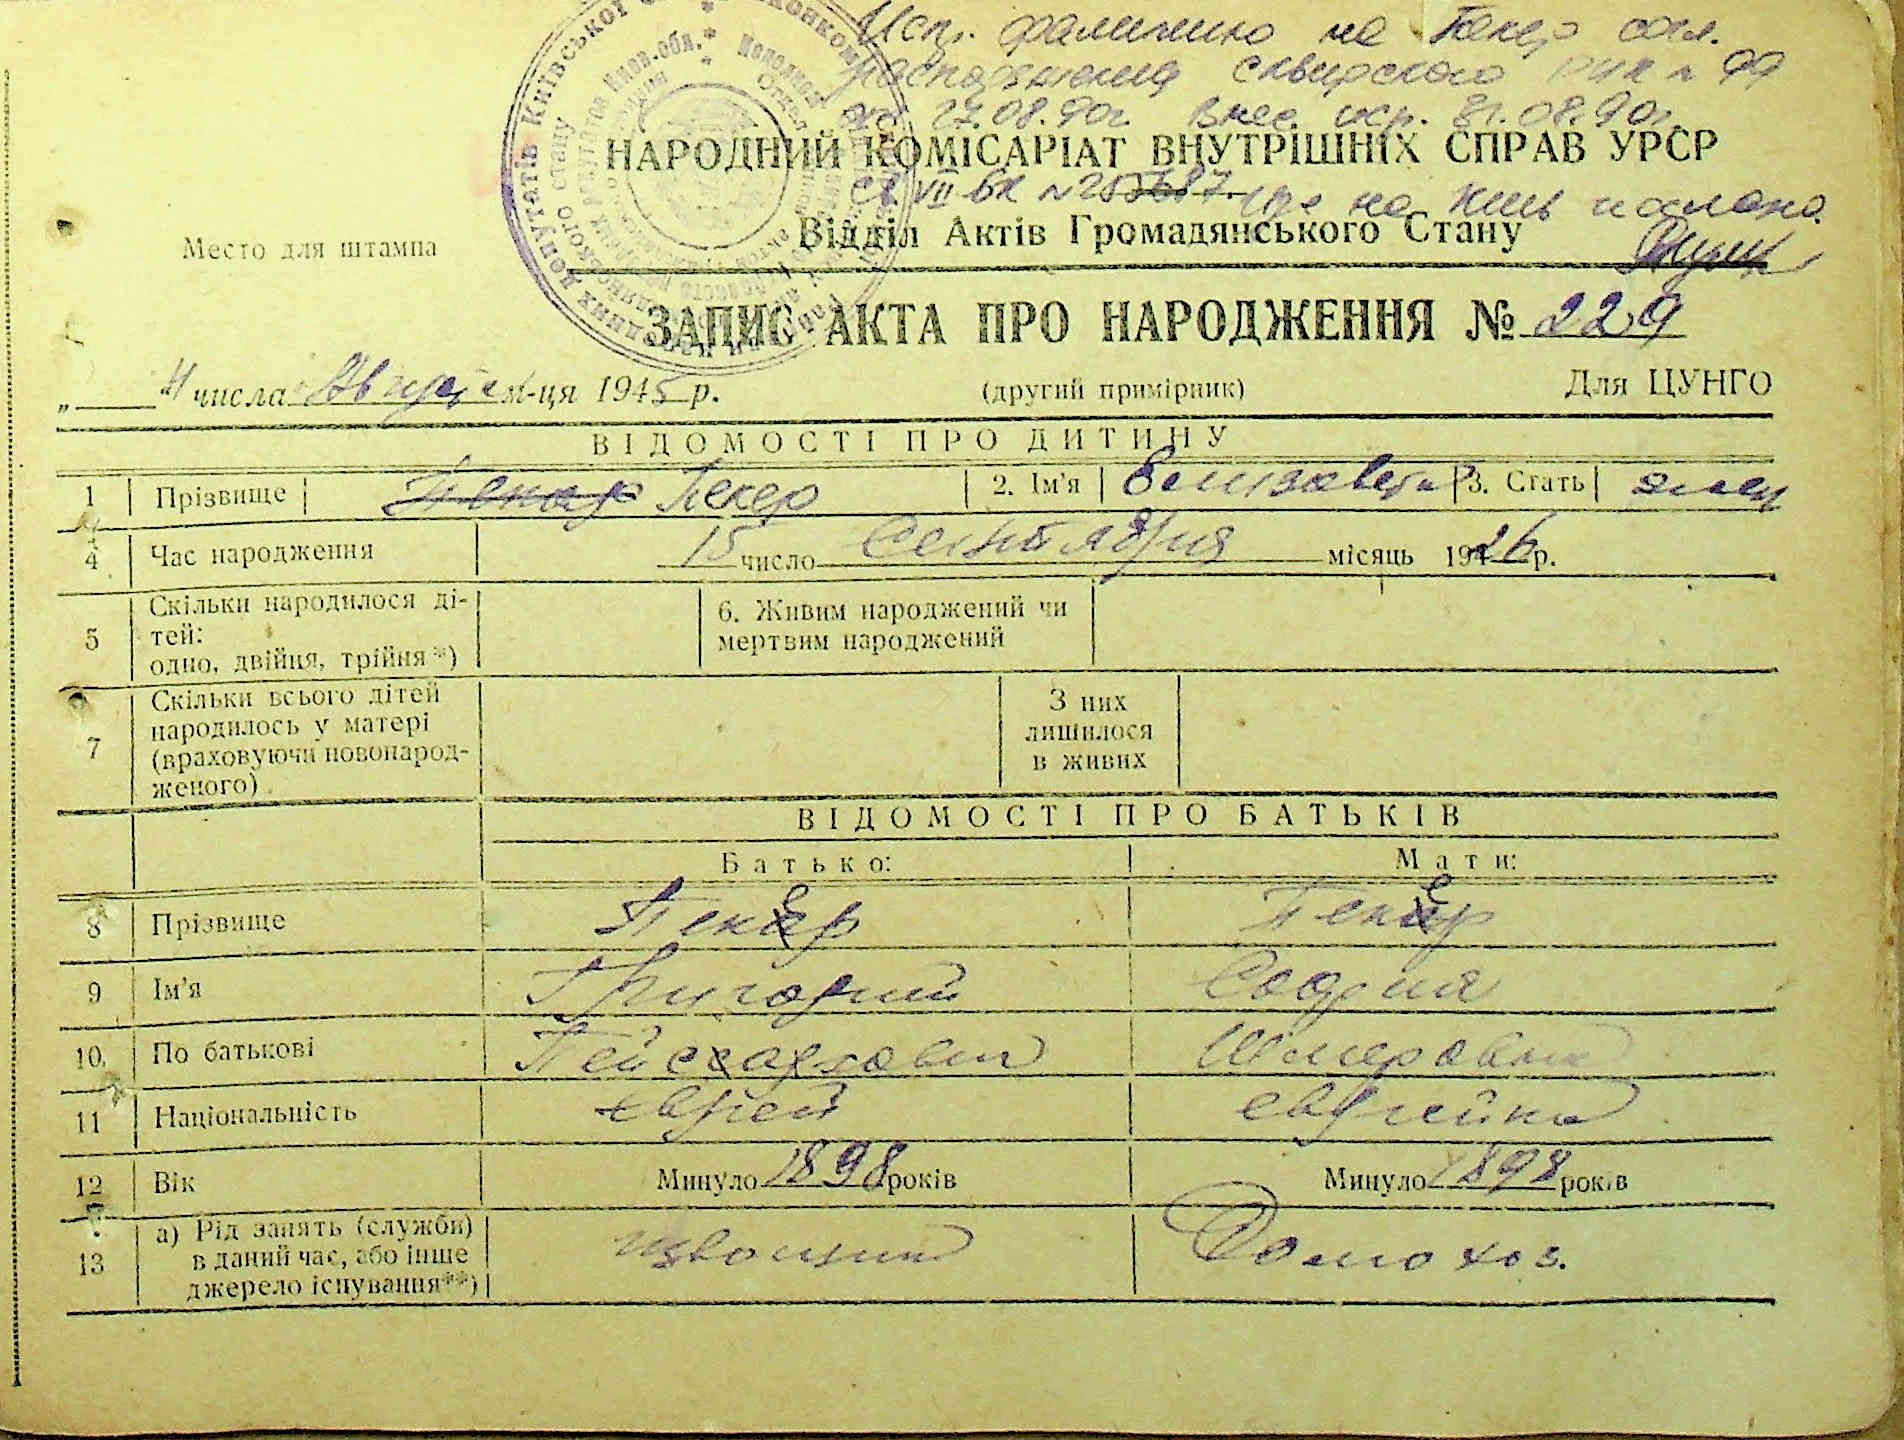 Испр. фамилию на Пекер согл.
распоряжения сквирского РИК № 99
от 27.08.90г. внес. испр. 31.08.90г.
НАРОДНИЙ КОМІСАРІАТ ВНУТРІШНІХ СПРАВ УРСР
св. VII БК №
Место для штампа
Відділ Актів Громадянського Стану
ЗАПИС АКТА ПРО НАРОДЖЕННЯ № 229
„ 4 числа Август м-ця 1945 р. (другий примірник) Для ЦУНГО
ВІДОМОСТІ ПРО ДИТИНУ
1 Прізвище Пекар Пекер 2. Ім'я Елизавета 3. Стать женск
4 Час народження 15 число Сентября місяць 1926 р.
5 Скільки народилося ді-
тей:
одно, двійня, трійня*)
6. Живим народжений чи
мертвим народжений
7 Скільки всього дітей
народилось у матері
(враховуючи новонарод-
женого)
З них
лишилося
в живих
ВІДОМОСТІ ПРО БАТЬКІВ
Батько: Мати:
8 Прізвище Пекер Пекер
9 Ім'я Григорий София
10. По батькові Шмеровна
11 Національність еврей еврейка
12 Вік Минуло 1898 років Минуло 1898 років
13 а) Рід занять (служби)
в даний час, або інше
джерело існування**)
извощик Домохоз.